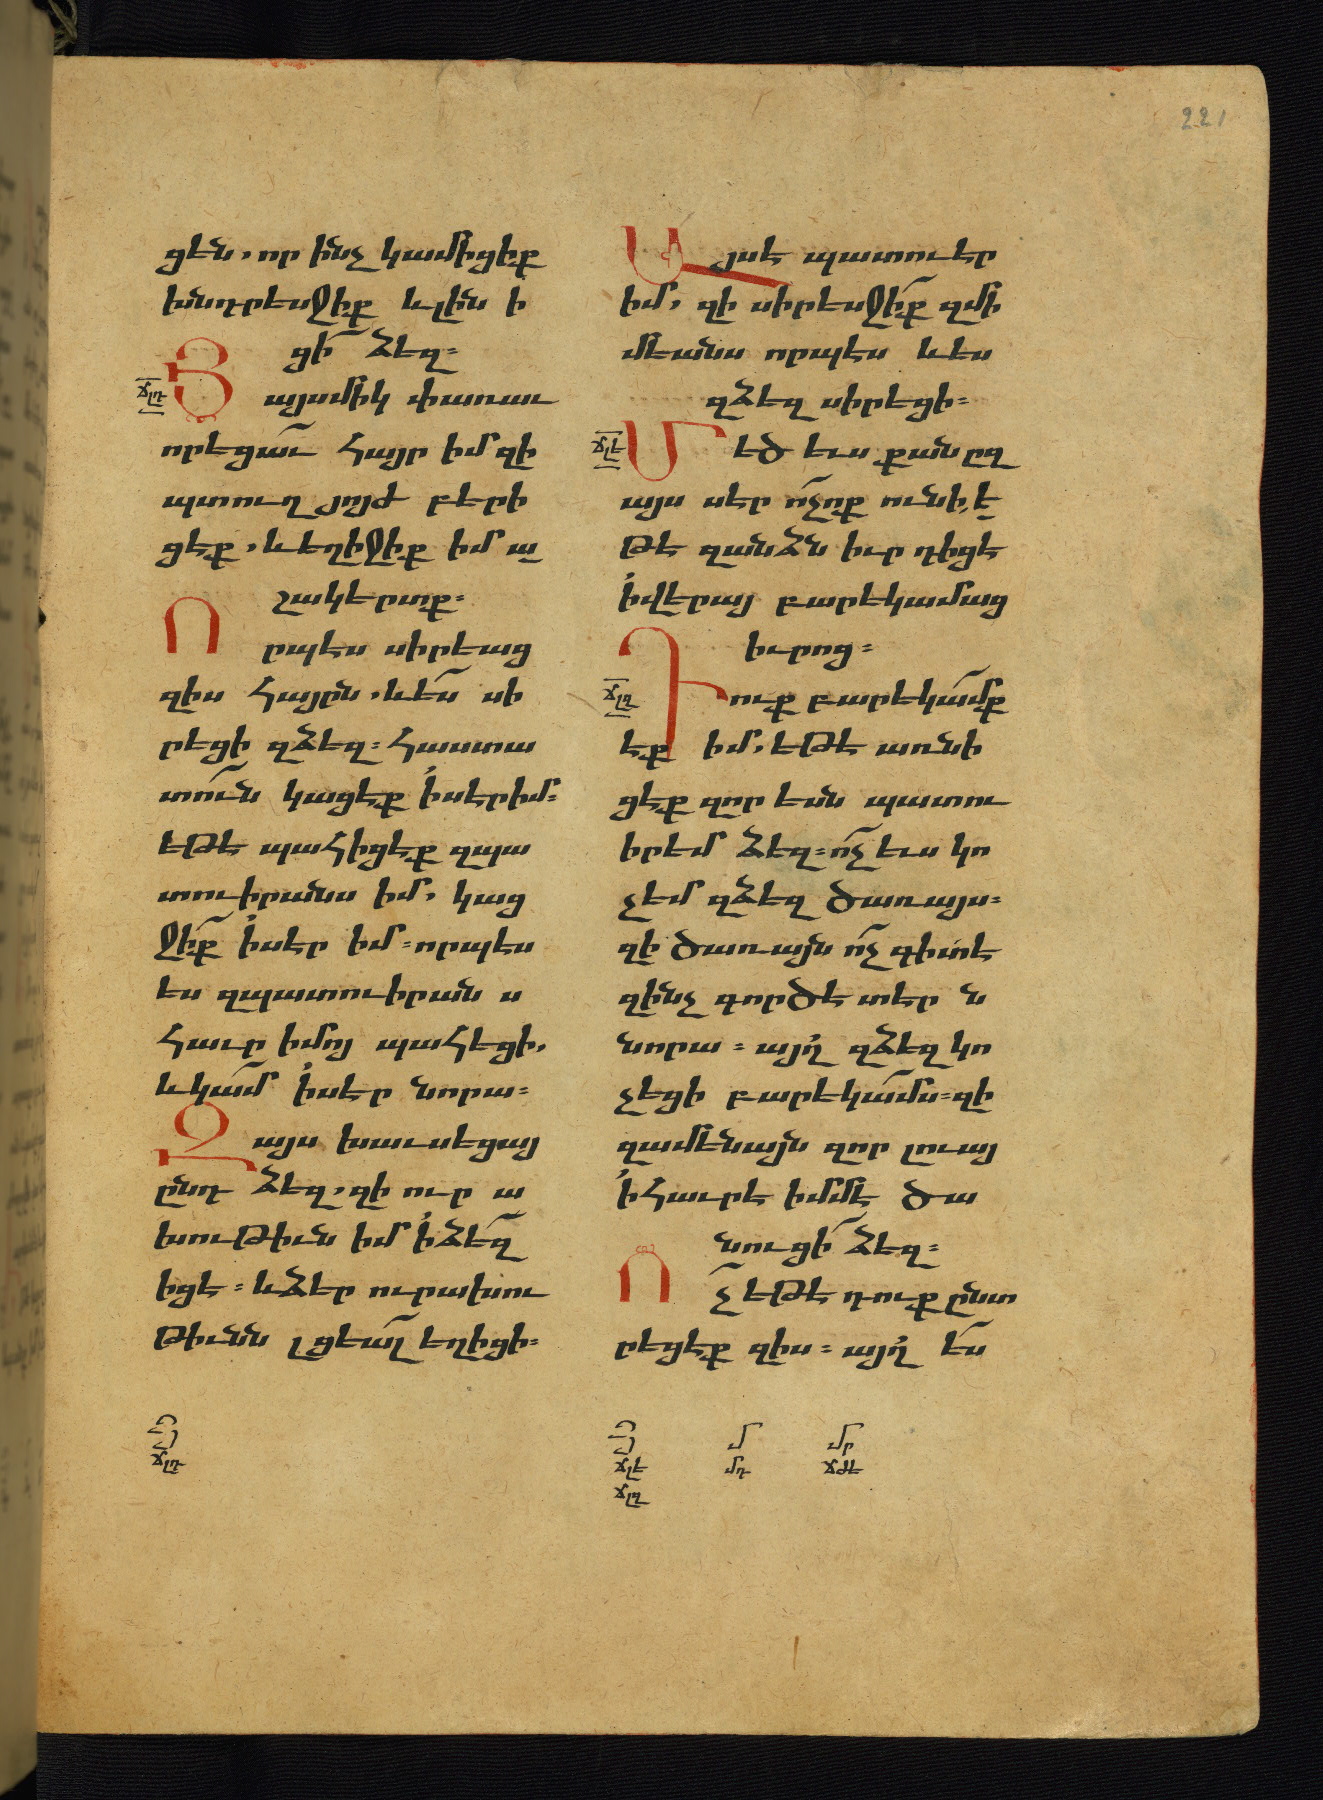 221
ցեն, որ ինչ կամիցեք
խնդրեսջիք և լին ի
ցի՛ ձեզ։
ՃԼԴ
Յայսմիկ փառաւ
որեցաւ՛ Հայր իմ զի
պտուղ յոյժ բերի
ցեք, և եղիջիք իմ ա
շակերտք։
Որպէս սիրեաց
զիս Հայրն, և ե՛ս սի
րեցի զձեզ։ Հաստա
տո՛ւն կացեք ի սէր իմ։
եթէ պահիցեք զպա
տուիրանս իմ, կաց
ջի՛ք ի սէր իմ։ որպէս
ես զպատուիրան ս
Հաւր իմոյ պահեցի,
և կա՛մ ի սէր նորա։
Զայս խաւսեցայ
ընդ ձեզ, զի ուր ա
խութիւն իմ ի ձե՛զ
իցէ։ և ձեր ուրախու
թիւնն լցեա՛լ եղիցի։
Այսէ պատուէր
իմ, զի սիրեսջի՛ք զմի
մեանս որպէս և ես
զձեզ սիրեցի։
ՃԼԵ
Մեծ ևս քան ըզ
այս սէր ո՛չոք ունի, ե
թէ զանձն իւր դիցէ
ի վերայ բարեկամաց
իւրոց։
ՃԼԶ
Դուք բարեկա՛մք
եք իմ, եթէ առնի
ցեք զոր եսն պատու
իրեմ ձեզ։ ո՛չ ևս կո
չեմ զձեզ ծառայս։
զի ծառայն ո՛չ գիտէ
զինչ գործէ տէր ն
նորա։ այղ զձեզ կո
չեցի բարեկա՛մս։ զի
զամենայն զոր լուայ
ի Հաւրէ իմմէ ծա
նուցի՛ ձեզ։
Ո՛չ եթէ դուք ընտ
րեցեք զիս։ այղ ե՛ս
ՃԼԴ
ՃԼԵ ՄԴ ՃԺԵ
ՃԼԶ